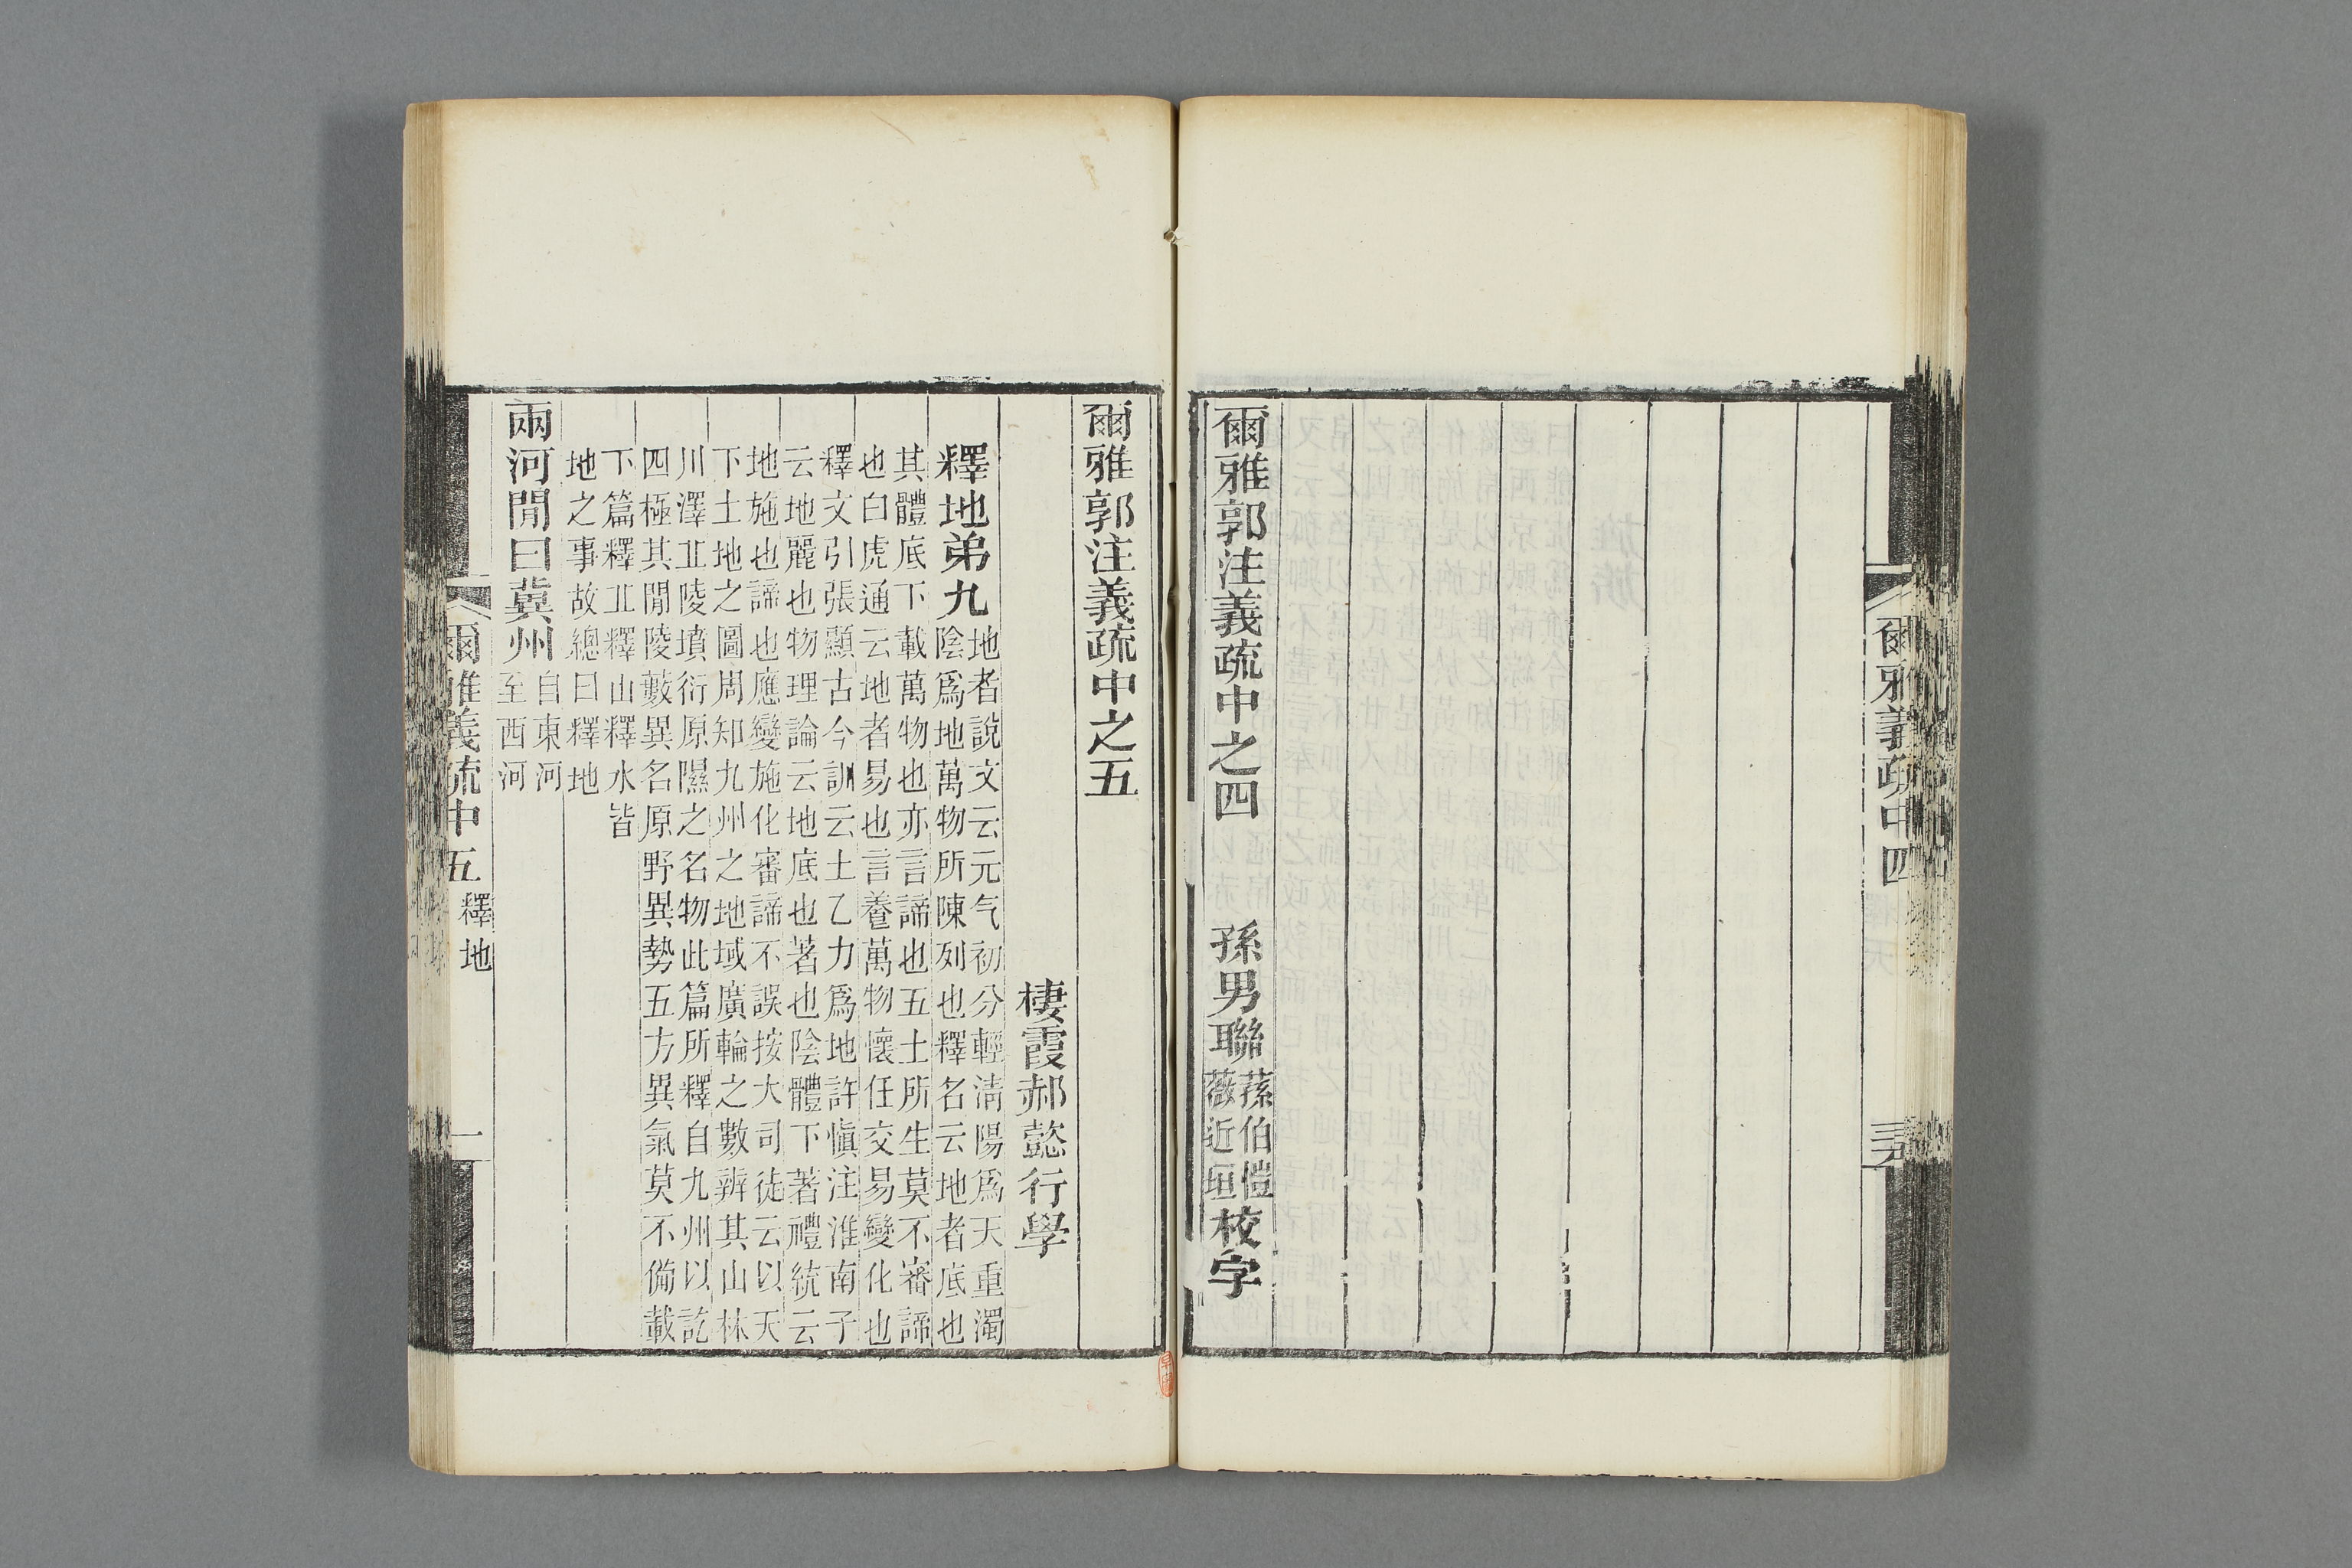 爾雅郭注義疏中之四 孫男聯 蓀伯愷 薇近垣 校字
爾雅義疏中四
爾雅郭注義疏中之五
棲霞郝懿行學
釋地弟九
地者說文云元气初分輕清陽爲天重濁
陰爲地萬物所陳列也釋名云地者底也
其體底下載萬物也亦言諦也五土所生莫不審諦
也白虎通云地者易也言養萬物懷任交易變化也
釋文引張顯古今訓云土乙力爲地許愼注淮南子
云地麗也物理論云地底也著也陰體下著禮統云
地施也諦也應變施化審諦不誤按大司徒云以天
下土地之圖周知九州之地域廣輪之數辨其山林
川澤丘陵墳衍原隰之名物此篇所釋自九州以訖
四極其閒陵藪異名原野異勢五方異氣莫不僃載
下篇釋丘釋山釋水皆
地之事故總曰釋地
兩河閒曰冀州
自東河
至西河
爾雅義疏中五 釋地 一